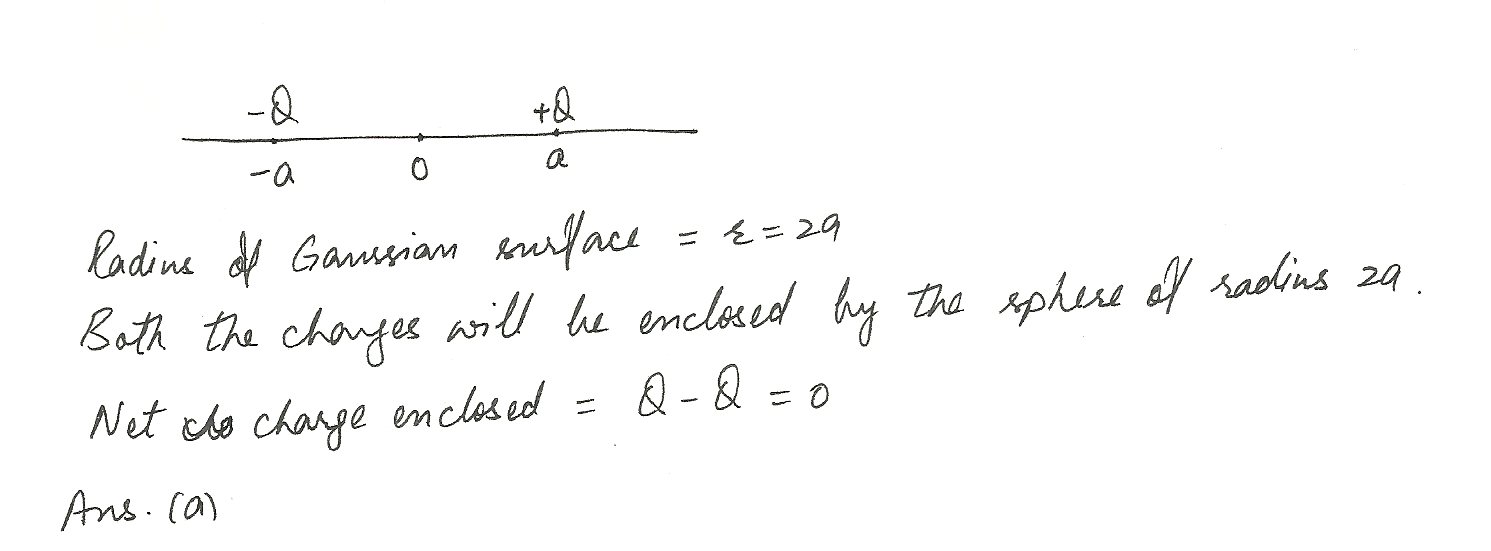 -Q +Q
-a 0 a
Radius of Gaussian surface = r = 2a
Both the charges will be enclosed by the sphere of radius 2a.
Net charge enclosed = Q - Q = 0
Ans. (a)